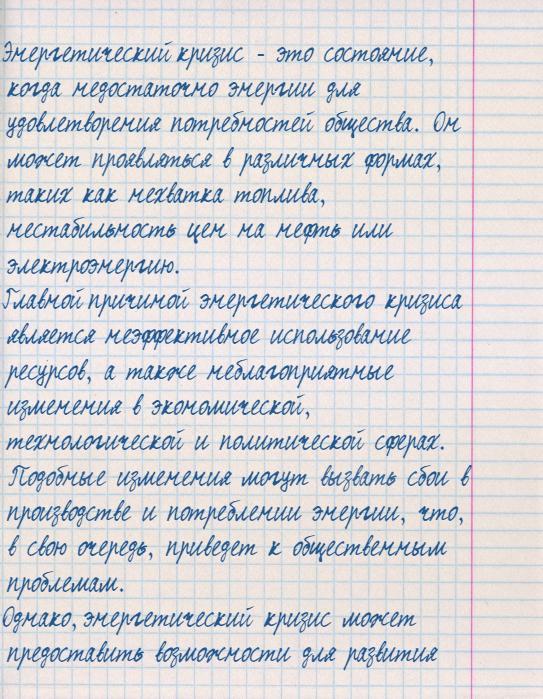 Энергетический кризис - это состояние,
когда недостаточно энергии для
удовлетворения потребностей общества. Он
может проявляться в различных формах,
таких как нехватка топлива,
нестабильность цен на нефть или
электроэнергию.
Главной причиной энергетического кризиса
является неэффективное использование
ресурсов, а также неблагоприятные
изменения в экономической,
технологической и политической сферах.
Подобные изменения могут вызвать сбои в
производстве и потреблении энергии, что,
в свою очередь, приведет к общественным
проблемам.
Однако, энергетический кризис может
предоставить возможности для развития